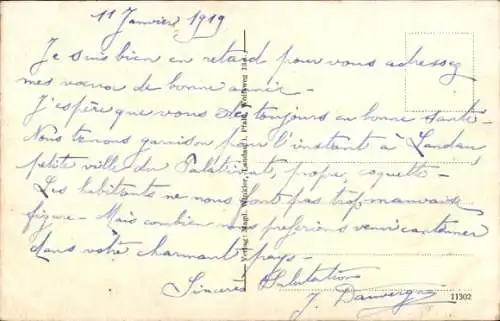 11 Janvier 1919
Je suis bien en retard pour vous adresser
mes vœux de bonne année -
J'espère que vous êtes toujours en bonne santé -
Nous tenons garnison pour l'instant à Landau,
petite ville du Palatinat, propre, coquette -
Les habitants ne nous font pas trop mauvaise
figure - Mais combien nous préférions venir cantonner
dans votre charmant pays -
Sincères Salutations
J. Dauvergne
Verlag: Magd. Winkler, Landau i. Pfalz, Wolfsweg
11302